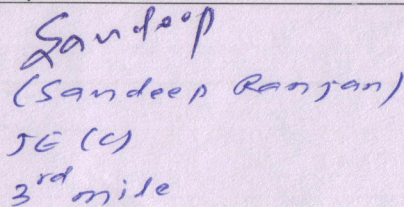 Sandeep
(Sandeep Ranjan)
JE (C)
3rd mile